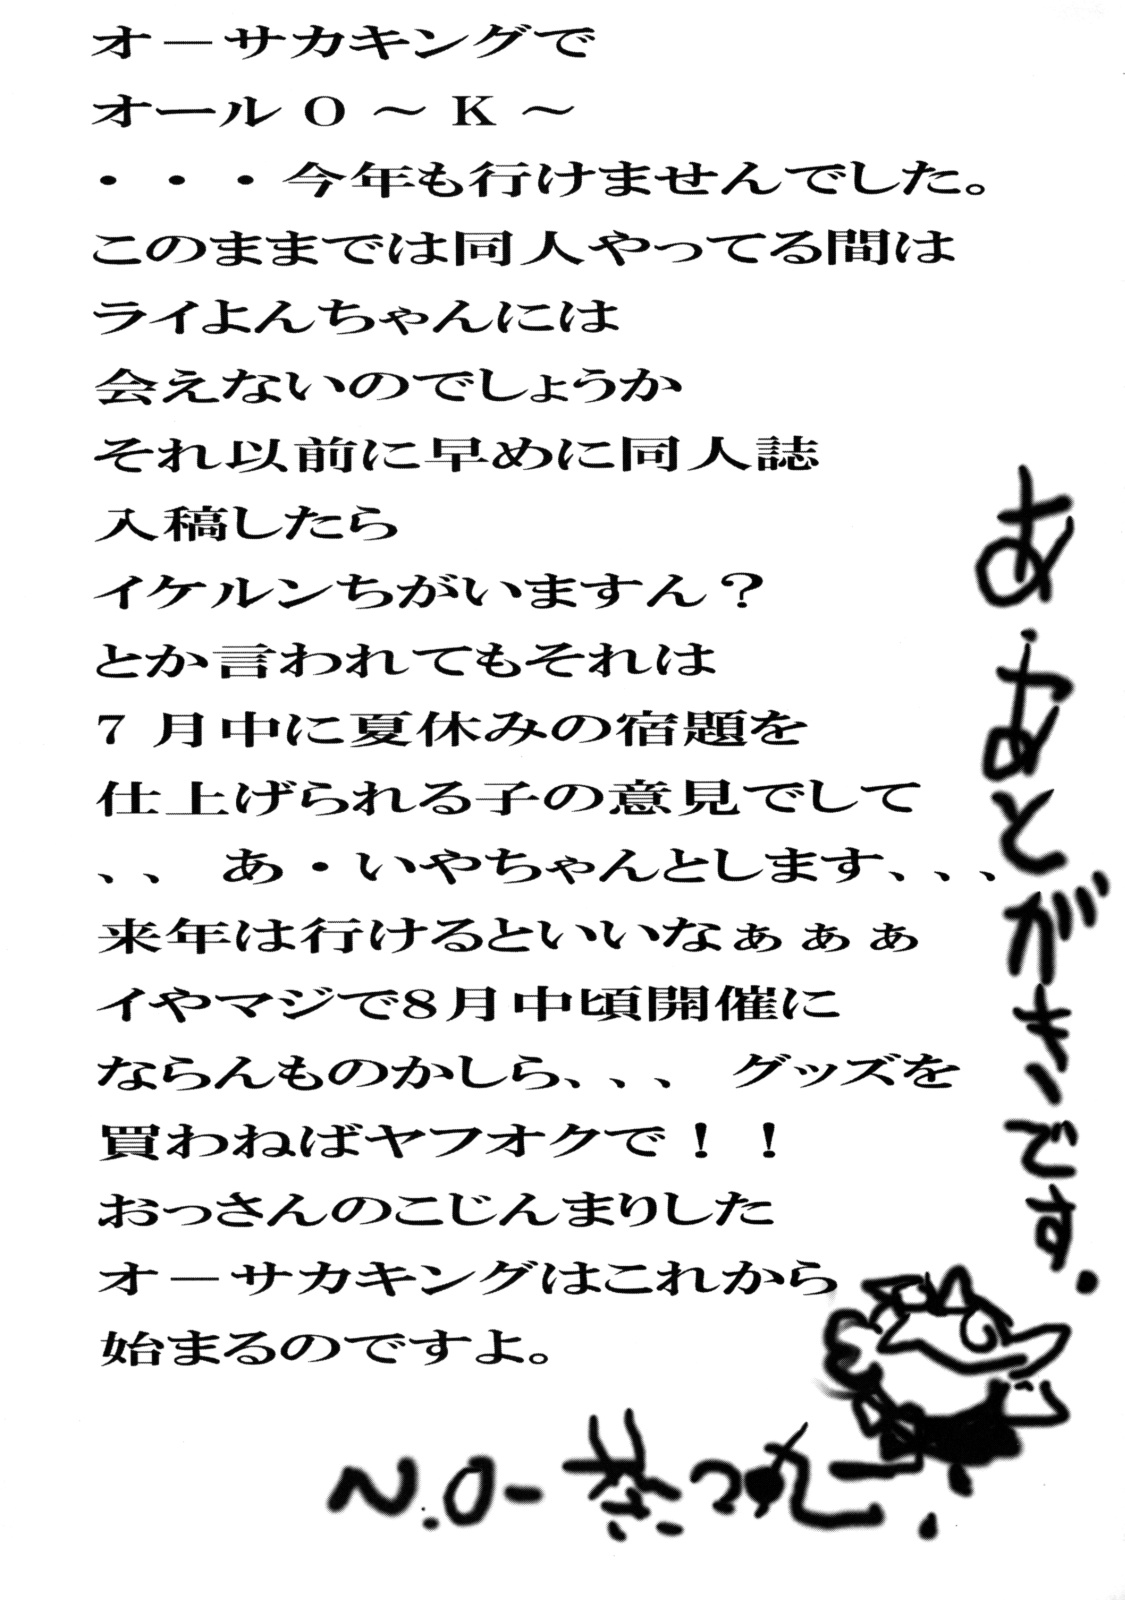 オーサカキングで
オールO～K～
・・・今年も行けませんでした。
このままでは同人やってる間は
ライよんちゃんには
会えないのでしょうか
それ以前に早めに同人誌
入稿したら
イケルンちがいますん？
とか言われてもそれは
7月中に夏休みの宿題を
仕上げられる子の意見でして
、、 あ・いやちゃんとします、、、
来年は行けるといいなぁぁぁ
イやマジで8月中頃開催に
ならんものかしら、、、 グッズを
買わねばヤフオクで！！
おっさんのこじんまりした
オーサカキングはこれから
始まるのですよ。
あ・あとがき、です.
N.O-